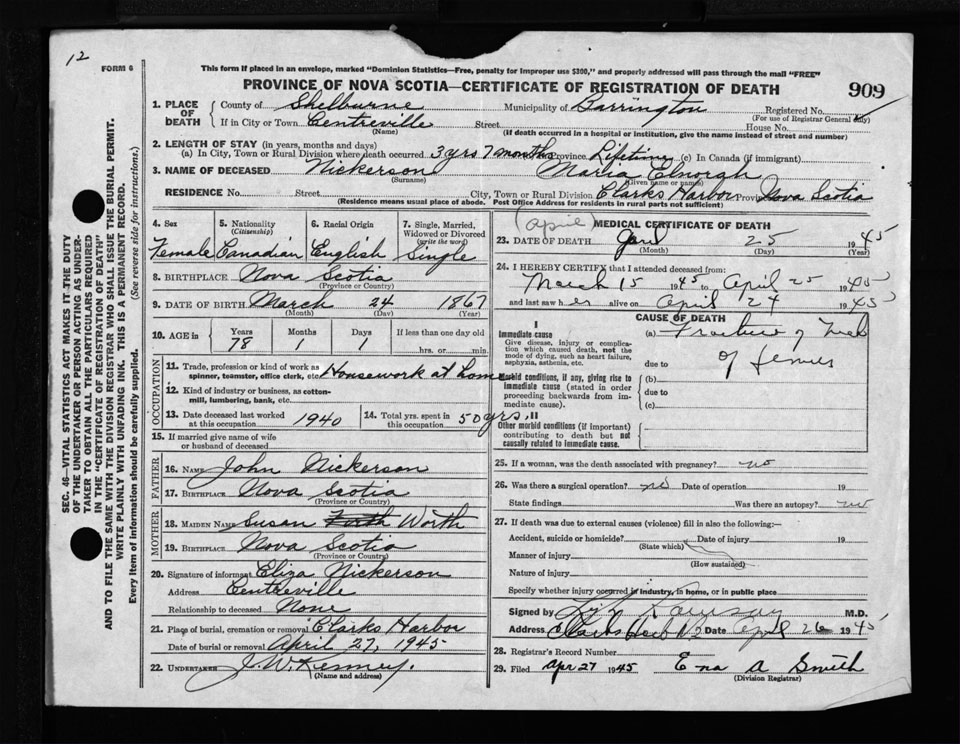 12
FORM 6
This form if placed in an envelope, marked "Dominion Statistics—Free, penalty for improper use $300," and properly addressed will pass through the mail "FREE"
PROVINCE OF NOVA SCOTIA—CERTIFICATE OF REGISTRATION OF DEATH
909
SEC. 46—VITAL STATISTICS ACT MAKES IT THE DUTY
OF THE UNDERTAKER OR PERSON ACTING AS UNDER-
TAKER TO OBTAIN ALL THE PARTICULARS REQUIRED
IN THE "CERTIFICATE OF REGISTRATION OF DEATH"
AND TO FILE THE SAME WITH THE DIVISION REGISTRAR WHO SHALL ISSUE THE BURIAL PERMIT.
WRITE PLAINLY WITH UNFADING INK. THIS IS A PERMANENT RECORD.
Every item of information should be carefully supplied. (See reverse side for instructions.)
1. PLACE OF DEATH
County of Shelburne Municipality of Barrington Registered No.
(For use of Registrar General only)
If in City or Town Centreville Street House No.
(Name) (If death occurred in a hospital or institution, give the name instead of street and number)
2. LENGTH OF STAY (in years, months and days)
(a) In City, Town or Rural Division where death occurred 3 yrs 7 months Province Lifetime (c) In Canada (if immigrant)
3. NAME OF DECEASED Nickerson Maria
(Surname) (Given name or names)
RESIDENCE No. Street City, Town or Rural Division Clarks Harbor Province Nova Scotia
(Residence means usual place of abode. Post Office Address for residents in rural parts not sufficient)
4. Sex 5. Nationality (Citizenship) 6. Racial Origin 7. Single, Married, Widowed or Divorced (write the word)
Female Canadian English Single
8. BIRTHPLACE Nova Scotia
(Province or Country)
9. DATE OF BIRTH March 24 1867
(Month) (Day) (Year)
10. AGE in Years Months Days If less than one day old
78 1 1 hrs. or min.
OCCUPATION
11. Trade, profession or kind of work as spinner, teamster, office clerk, etc. Housework at home
12. Kind of industry or business, as cotton-mill, lumbering, bank, etc.
13. Date deceased last worked at this occupation 1940 14. Total yrs. spent in this occupation 50 yrs.
15. If married give name of wife or husband of deceased
FATHER
16. NAME John Nickerson
17. BIRTHPLACE Nova Scotia
(Province or Country)
MOTHER
18. MAIDEN NAME Susan Worth
19. BIRTHPLACE Nova Scotia
(Province or Country)
20. Signature of informant Eliza Nickerson
Address Centreville
Relationship to deceased None
21. Place of burial, cremation or removal Clarks Harbor
Date of burial or removal April 27, 1945
22. UNDERTAKER J. W. Kenney.
(Name and address)
(April) MEDICAL CERTIFICATE OF DEATH
23. DATE OF DEATH 25 1945
(Month) (Day) (Year)
24. I HEREBY CERTIFY that I attended deceased from:
March 15 1945 to April 25 1945
and last saw her alive on April 24 1945
CAUSE OF DEATH
I
Immediate cause
Give disease, injury or complication which caused death, not the mode of dying, such as heart failure, asphyxia, asthenia, etc.
(a) Fracture of Neck
due to of femur
Morbid conditions, if any, giving rise to immediate cause (stated in order proceeding backwards from immediate cause).
(b)
due to
(c)
II
Other morbid conditions (if important) contributing to death but not causally related to immediate cause.
25. If a woman, was the death associated with pregnancy? no
26. Was there a surgical operation? no Date of operation 19
State findings Was there an autopsy? no
27. If death was due to external causes (violence) fill in also the following:—
Accident, suicide or homicide? Date of injury 19
(State which)
Manner of injury
(How sustained)
Nature of injury
Specify whether injury occurred in industry, in home, or in public place
Signed by M.D.
Address Date April 26 1945
28. Registrar's Record Number
29. Filed Apr 27 1945 Ena A Smith
(Division Registrar)